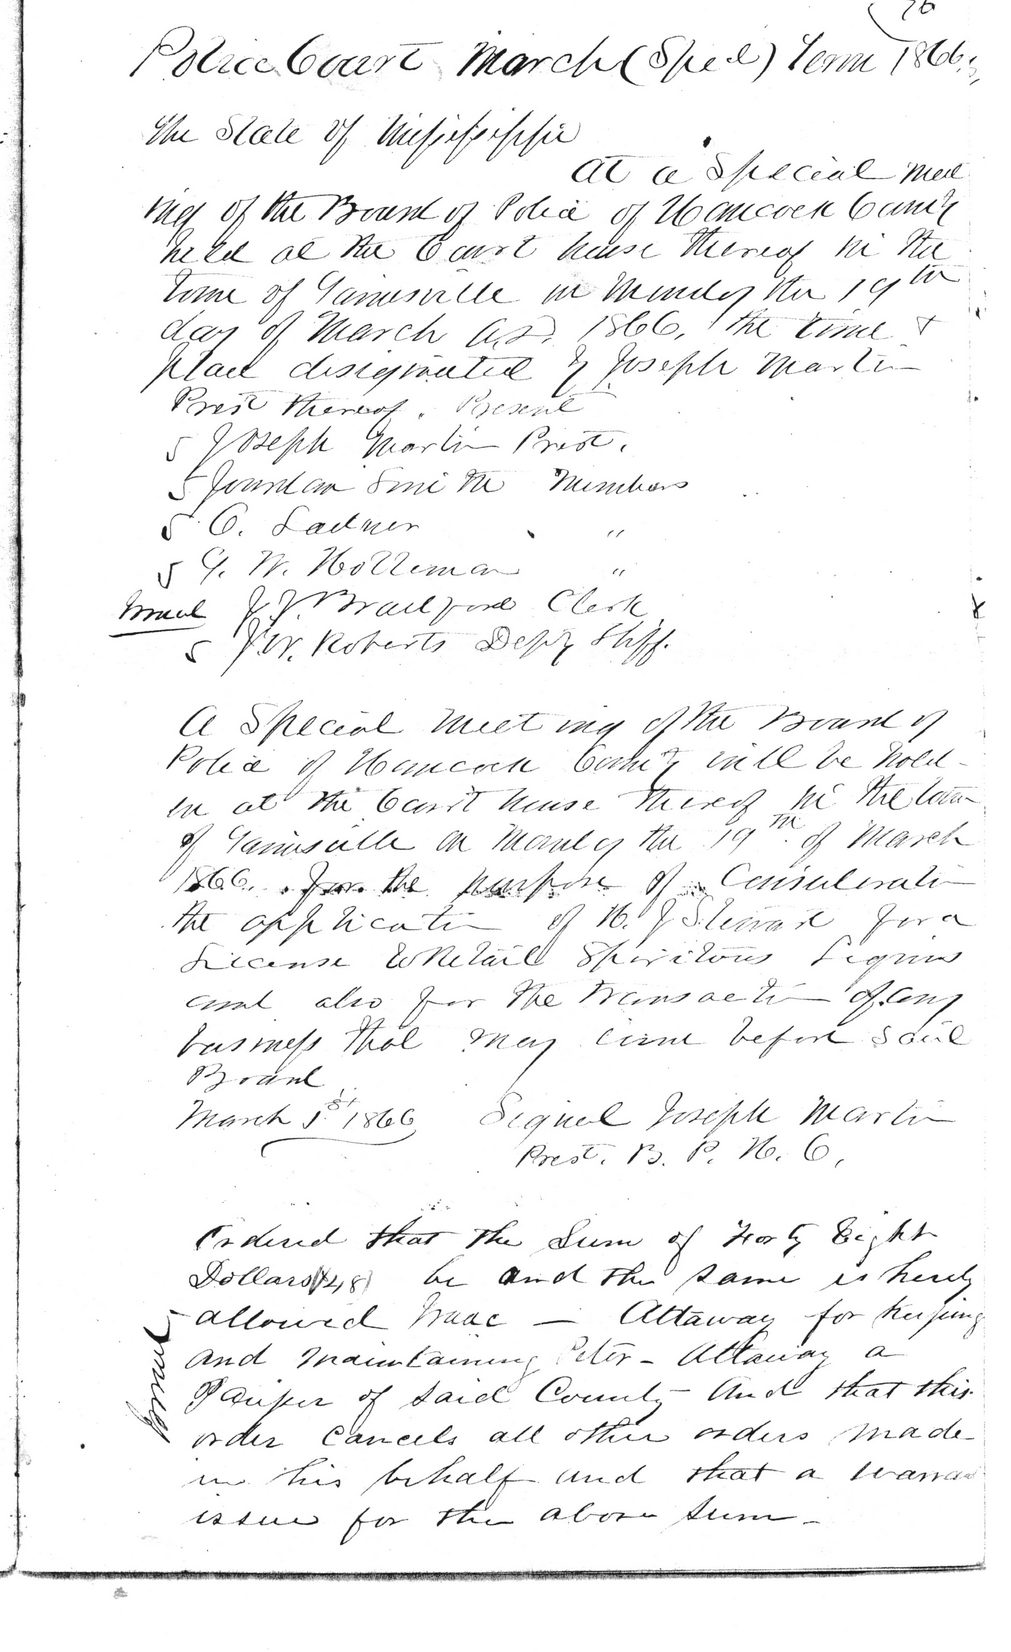 76
Police Court March (Specl) Term 1866.
The State of Mississippi
At a Special meet
ing of the Board of Police of Hancock County
held at the Court house thereof in the
town of Gainesville on Monday the 19th
day of March A.D. 1866, the time &
place designated by Joseph Martin
Prest thereof. Present
5 Joseph Martin Prest.
5 Jourdan Smith Members
5 C. Ladner "
5 G. W. Holleman "
Issued J. J. Bradford Clerk
5 J. W. Roberts Depty Shff.
A Special meeting of the Board of
Police of Hancock County will be hold-
en at the Court house thereof in the town
of Gainesville on Monday the 19th of March
1866. for the purpose of Consideratin
the application of H. J Stewart for a
License to Retail Spiritous Liquors
and also for the transaction of any
business that may come before said
Board
March 1st 1866 Signed Joseph Martin
Prest. B. P. H. C.
Ordered that the Sum of Forty Eight
Dollars (48) be and the same is hereby
allowed Isaac - Attaway for keeping
and maintaining Peter - Attaway a
Pauper of said County - And that this
order cancels all other orders made
in his behalf and that a warrant
issue for the above sum -
Issued